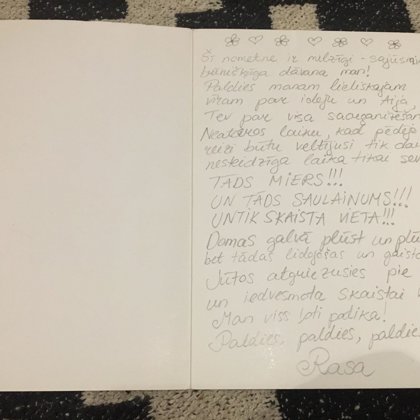 Šī nometne ir milzīgi - sajūsmin
brīnišķīga dāvana man!
Paldies manam lieliskajam
vīram par ideju un Aijā
Tev par visa saorganizēšan
Neatceros laiku, kad pēdējo
reizi būtu veltījusi tik dau
nesteidzīga laika tikai sev
TĀDS MIERS!!!
UN TĀDS SAULAINUMS!!!
UN TIK SKAISTA VIETA!!!
Domas galvā plūst un plūs
bet tādas lidojošas un gaišas
Jūtos atgriezusies pie
un iedvesmota skaistai
Man viss ļoti patika!
Paldies, paldies, paldies
Rasa